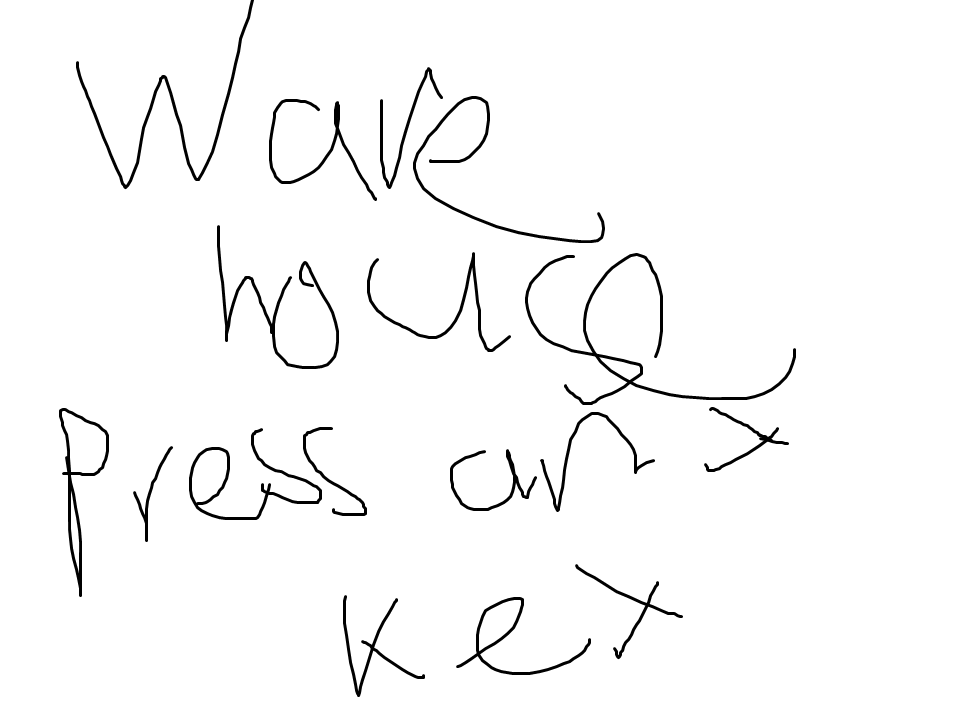 Ware
house
Press any
key